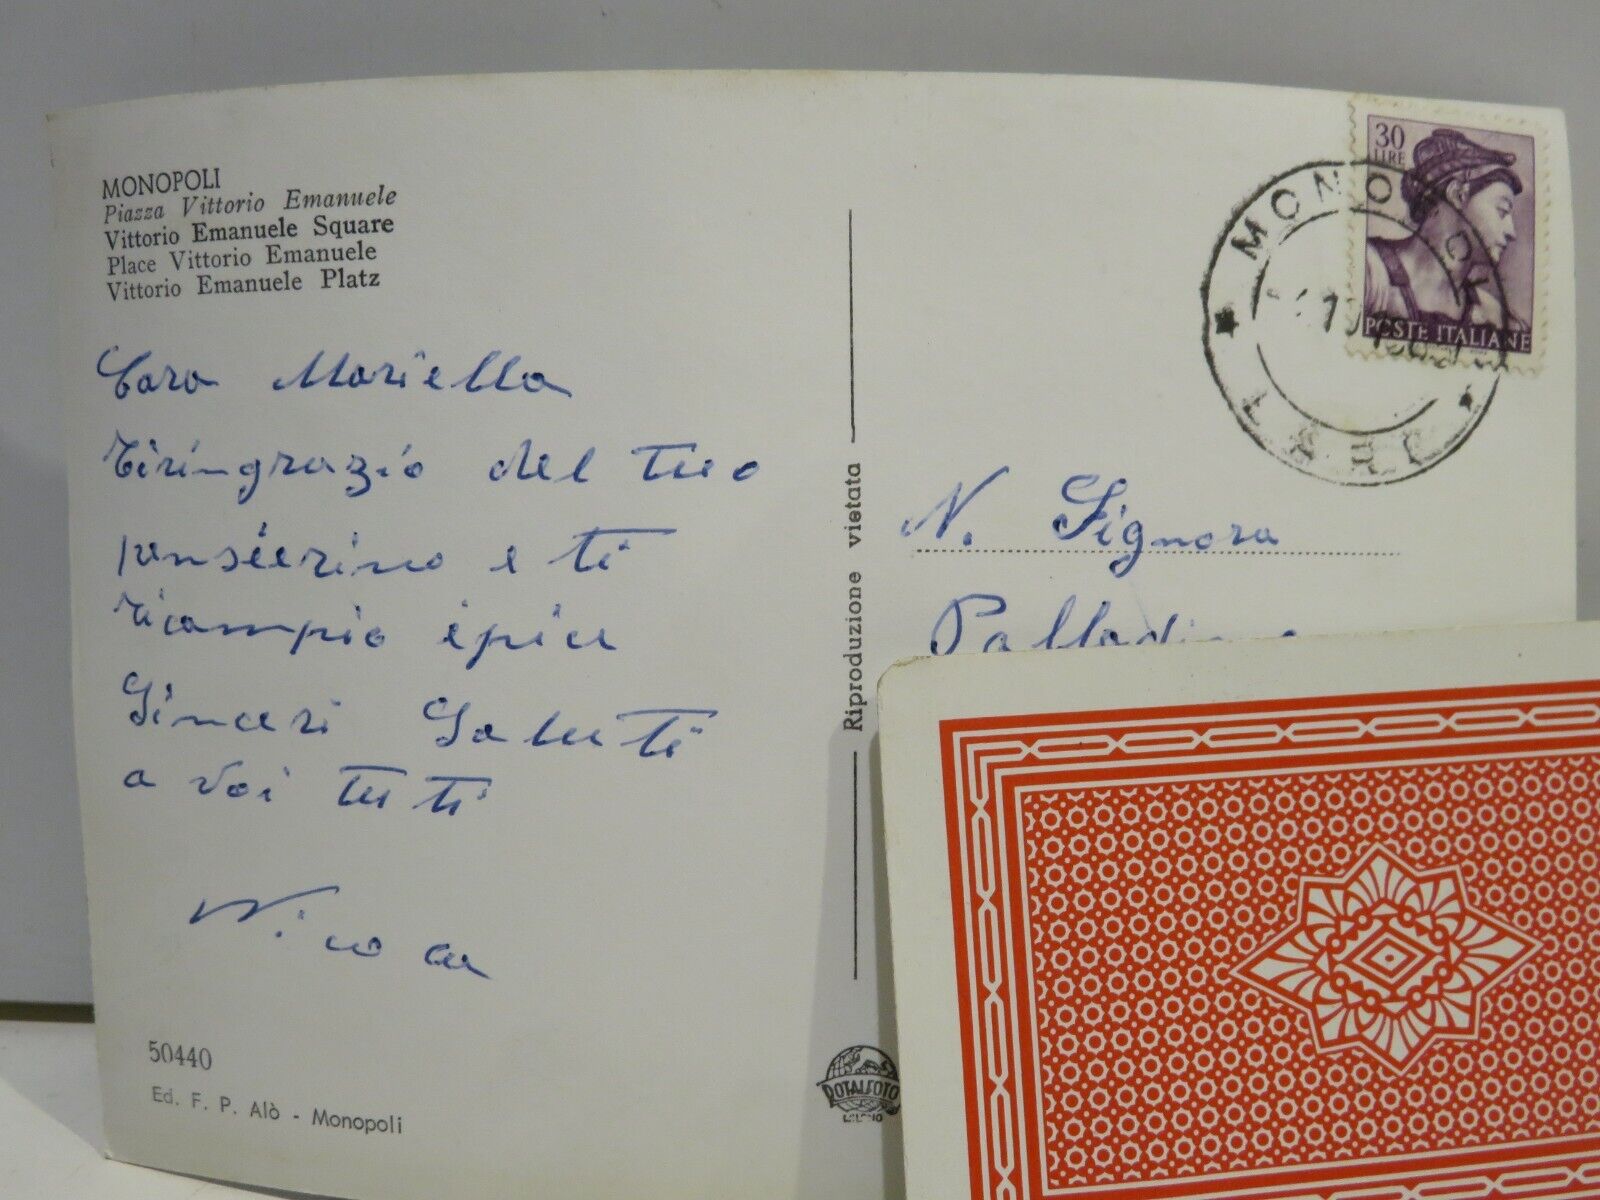 MONOPOLI
Piazza Vittorio Emanuele
Vittorio Emanuele Square
Place Vittorio Emanuele
Vittorio Emanuele Platz
Cara Mariella
Tiringrazio del tuo
pensierino e ti
ricampio i piu
Sinceri Saluti
a voi tuti
50440
Ed. F. P. Alò - Monopoli
Riproduzione vietata
ROTALFOTO
MILANO
30
LIRE
POSTE ITALIANE
MONOPOLI
BARI
N. Signora